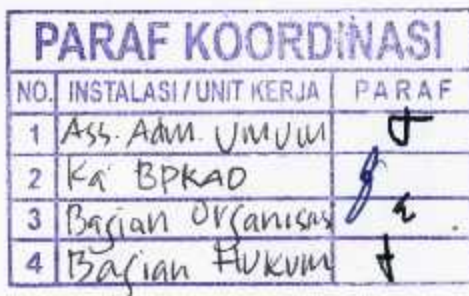 PARAF KOORDINASI
NO. INSTALASI / UNIT KERJA PARAF
1 Ass. Adm. Umum
2 Ka BPKAD
3 Bagian Organisasi
4 Bagian Hukum